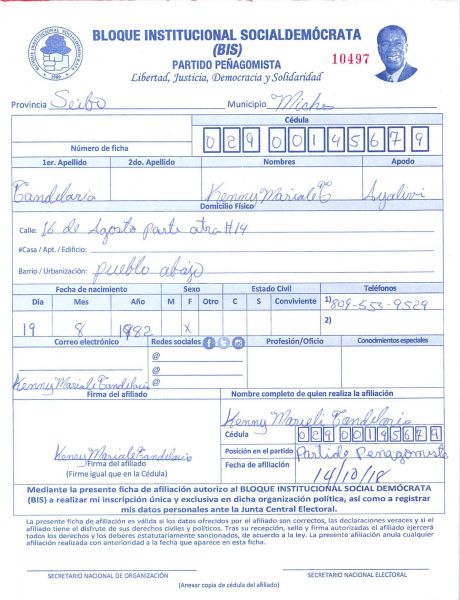 BLOQUE INSTITUCIONAL SOCIALDEMÓCRATA
(BIS)
PARTIDO PEÑAGOMISTA
Libertad, Justicia, Democracia y Solidaridad
10497
BLOQUE INSTITUCIONAL SOCIALDEMOCRATA
Provincia Seibo Municipio Miches
Cédula
Número de ficha 029 0014567 9
1er. Apellido 2do. Apellido Nombres Apodo
Candelario Kenny Mariale C
Domicilio Físico
Calle: 16 de Agosto parte atra #14
#Casa / Apt. / Edificio:
Barrio / Urbanización: pueblo abajo
Fecha de nacimiento Sexo Estado Civil Teléfonos
Día Mes Año M F Otro C S Conviviente 1) 809-553-9529
2)
19 8 1982 X
Correo electrónico Redes sociales Profesión/Oficio Conodmientos especiales
@
@
@
Kenny Mariale Candelario
Firma del afiliado Nombre completo de quien realiza la afiliación
Kenny Marieli Candelario
Cédula 029 0014567 9
Kenny Mariale Candelario
Firma del afiliado
(Firme igual que en la Cédula)
Posición en el partido Partido Penagomista
Fecha de afiliación 14/10/18
Mediante la presente ficha de afiliación autorizo al BLOQUE INSTITUCIONAL SOCIAL DEMÓCRATA
(BIS) a realizar mi inscripción única y exclusiva en dicha organización política, así como a registrar
mis datos personales ante la Junta Central Electoral.
La presente ficha de afiliación es válida si los datos ofrecidos por el afiliado son correctos, las declaraciones veraces y si el
afiliado tiene el disfrute de sus derechos civiles y políticos. Tras su recepción, sello y firma autorizadas el afiliado ejercerá
todos los derechos y los deberes estatutariamente sancionados, de acuerdo a la ley. La presente afiliación anula cualquier
afiliación realizada con anterioridad a la fecha que aparece en esta ficha.
SECRETARIO NACIONAL DE ORGANIZACIÓN SECRETARIO NACIONAL ELECTORAL
(Anexar copia de cédula del afiliado)